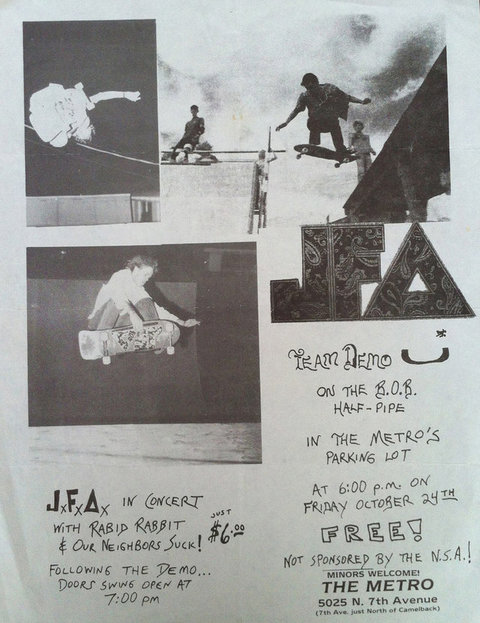 JFA
TEAM DEMO
ON THE B.O.B.
HALF-PIPE
IN THE METRO'S
PARKING LOT
AT 6:00 p.m. ON
FRIDAY OCTOBER 24TH
FREE!
NOT SPONSORED BY THE N.S.A.!
MINORS WELCOME!
THE METRO
5025 N. 7th Avenue
(7th Ave. just North of Camelback)
JxFxAx IN CONCERT
WITH RABID RABBIT
& OUR NEIGHBORS SUCK!
JUST
$6.00
FOLLOWING THE DEMO...
DOORS SWING OPEN AT
7:00 PM